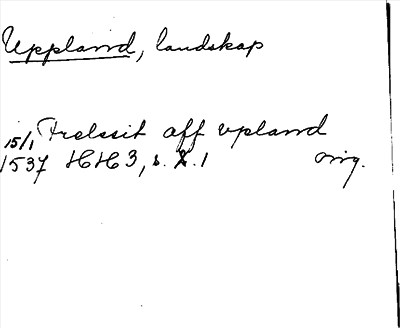 Uppland, landskap
15/1 Frelssit aff vpland
1537 HH 3, s. X. 1 orig.